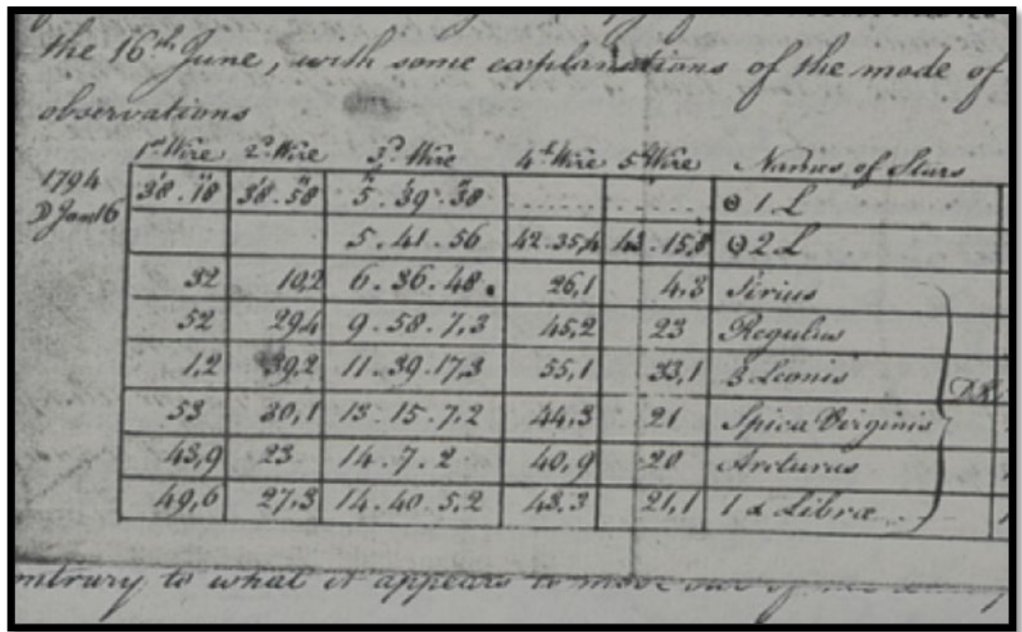 the 16th June, with some explanations of the mode of
observations
1st Wire 2d Wire 3d Wire 4th Wire 5th Wire Names of Stars
1794
D Jan 16
38'.18" 38'.58" 5h.39'.38" ☉ 1 L
5.41.56 42.35,4 43.15,8 ☉ 2 L
32 10,2 6.36.48. 26,1 4,3 Sirius
52 29,4 9.58.7,3 45,2 23 Regulus
1,2 39,2 11.39.17,3 55,1 33,1 β Leonis
53 30,1 13.15.7,2 44,3 21 Spica Virginis
43,9 23 14.7.2 40,9 20 Arcturus
49,6 27,3 14.40.5,2 43.3 21,1 1 α Libræ
contrary to what it appears to move